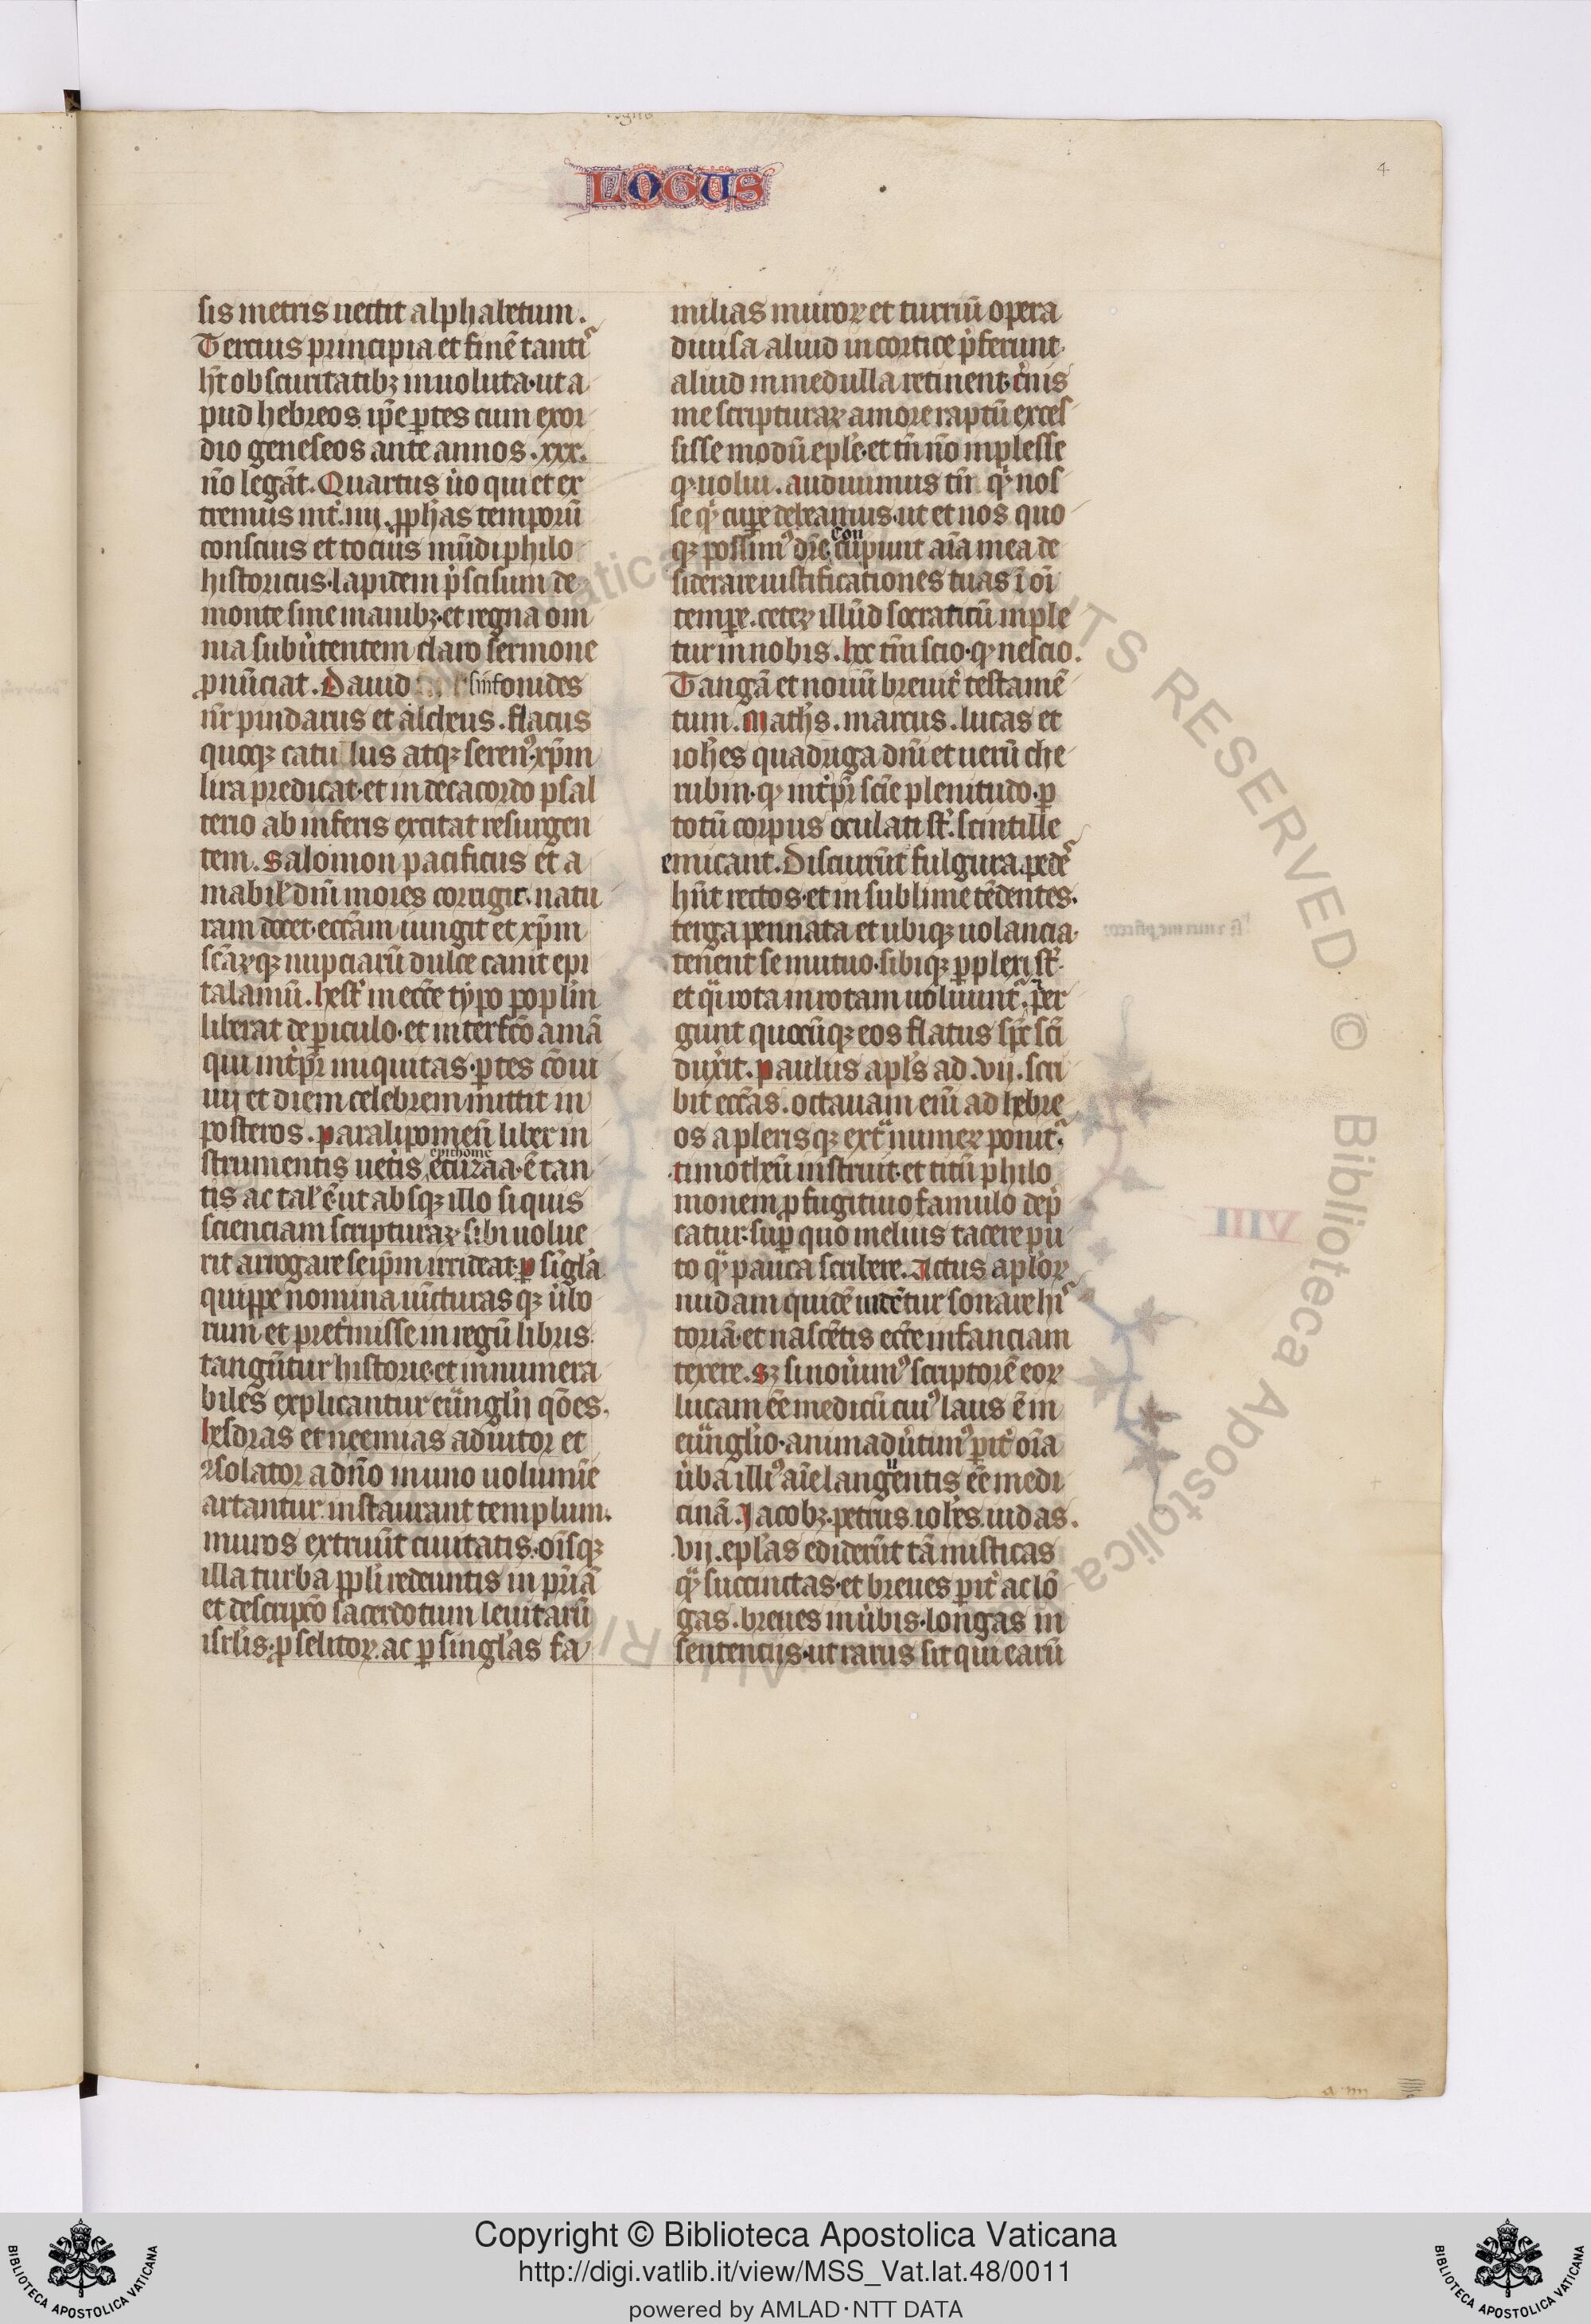 LOGUS
4
sis metris nectit alphabetum.
Tercius principia et finē tantꝭ
ħt obscuritatibꝫ inuoluta·ut a
pud hebreos ip̄e ꝑtes cum exor
dio geneseos ante annos .xxx.
n̄o legāt. Quartus u̓o qui et ex
tremus int̓ .iiij. ꝓph̓as temporū
conscius et tocius mūdi philo
historicus·lapidem p̓scisum de
monte sine manibꝫ·et regna om
nia subu̓tentem claro sermone
ꝓnūciat. Dauid simfonides
nr̄ pindarus et alcheus. flacus
quoqꝫ catullus atqꝫ serenꝰ·xp̄m
lira predicat·et in decacordo psal
terio ab inferis excitat resurgen
tem. Salomon pacificus et a
mabil̓ dn̄i mores corrigit. natu
ram docet·eccām iungit et xp̄m
scāꝝqꝫ nupciarū dulce canit epi
talamiū. hest̓ in eccē typo popl̄m
liberat de ꝑiculo·et interfcō amā
qui int̓p̄r iniquitas·ꝑtes cōui
uij et diem celebrem mittit in
posteros. paralipomen̄ liber in
strumentis uet̓is
epithome
ē tan
tis ac tal̓ ē·ut absqꝫ illo siquis
scienciam scripturaꝝ sibi uolue
rit arrogare seip̄m irrideat·ꝑ sīgl̓a
quippe nomina iūcturasqꝫ u̓bo
rum·et pret̓misse in regū libris
tangūtur historie·et innumera
biles explicantur euāngl̓ij q̄ōes.
hesdras et neemias adiutor et
ꝯsolator a dn̄o in uno uolumīe
artantur·instaurant templum.
muros extruūt ciuitatis·oīsqꝫ
illa turba ꝓpl̓i redeuntis in pr̄iā
et descripcō sacerdotum leuitarū
isrl̓is·ꝓselitoꝝ·ac ꝑ singl̓as fa
milias muroꝝ et turriū opera
diuisa aliud in cortice p̓ferunt
aliud in medulla retinent·c̓nis
me scripturaꝝ amore raptū exces
sisse modū epl̓e·et tn̄ n̄o inplesse
q̄ uolui. audiuimus tm̄ qͥ nos
se qͥ cupe debeamus·ut et nos quo
con
qꝫ possimꝰ dic̄e cupiuit aīa mea de
siderare iustificationes tuas ī oī
tempe. ceteꝝ illūd socraticū inple
tur in nobis. hoc tm̄ scio·q̄ nescio.
Tangā et nouū breuit̓ testamē
tum. Math̓s. marcus. lucas et
ioh̓es quadriga dn̄i et uerū che
rubin·q̄ int̓p̄r sciē plenitudo·ꝑ
totū corpus oculati st̓·scintille
emicant. Discurrūt fulgura·pedeꝭ
hn̄t rectos·et in sublime tēdentes.
terga pennata et ubiqꝫ uolancia
tenent se mutuo·sibiqꝫ ꝑplexi st̓·
et qͣ rota in rotam uoluunt̓·per
gunt quocūqꝫ eos flatus sp̄c sc̄i
dux̓it. paulus apl̓s ad .vij. scri
bit eccās. octauam eni̓ ad hebre
os a plerisqꝫ extͣ numeꝝ ponit̓.
timotheū instruit·et titū philo
monem ꝓ fugitiuo famulo dep̓
catur·suꝑ quo melius tacere pu
to qͣ pauca scribere. Actus apl̓oꝝ
nudam quidē uidētur sonare hiꝭ
toriā·et nascētis eccē infanciam
texere. sꝫ si nou̓imꝰ scriptorē eoꝝ
lucam ēē medicū cuiꝰ laus ē in
euāngl̓io·animadu̓timꝰ ꝑit̓ oīa
u̓ba illiꝰ aīe languentis ēē medi
cinā. Jacobꝫ·petrus·ioh̓es·iudas.
vij. epl̓as ediderūt tā misticas
qͣ succinctas·et breues ꝑit̓ ac lō
gas. breues in u̓bis·longas in
sentencijs·ut rarus sit qui earū
Copyright © Biblioteca Apostolica Vaticana
http://digi.vatlib.it/view/MSS_Vat.lat.48/0011
powered by AMLAD·NTT DATA
BIBLIOTECA APOSTOLICA VATICANA
BIBLIOTECA APOSTOLICA VATICANA